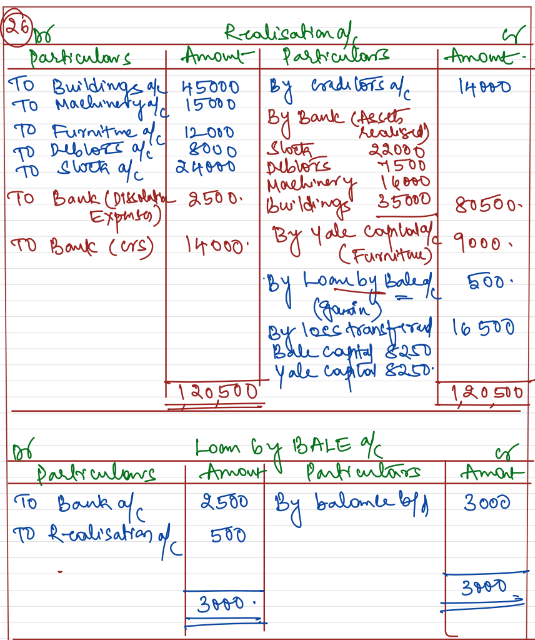 26
Dr Realisation a/c Cr
Particulars Amount Particulars Amount.
To Buildings a/c 45000 By creditors a/c 14000
To Machinery a/c 15000
By Bank (Assets realised)
To Furniture a/c 12000
To Debtors a/c 8000 Stock 22000
To Stock a/c 24000 Debtors 7500
Machinery 16000
To Bank (Dissolution Expenses) 2500. Buildings 35000 80500.
To Bank (crs) 14000. By Yale capital a/c (Furniture) 9000.
By Loan by Bale a/c (gain) 500.
By loss transferred 16500
Bale capital 8250
Yale capital 8250.
120,500 1,20,500
Dr Loan by BALE a/c Cr
Particulars Amount Particulars Amount
To Bank a/c 2500 By balance b/d 3000
To Realisation a/c 500
3000. 3000